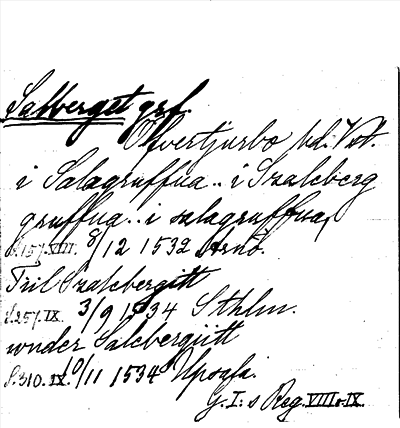 Salberget grf.
Öfvertjurbo hd. Vstm.
i Salagruffua .. i Szaleberg
gruffua .. i salagruffua,
s. 157. VIII. 8/12 1532 Arnö.
Till Szalebergitt
s. 257. IX. 3/9 1534 Sthlm.
wnder Salebergiitt
s. 310. IX. 10/11 1534 Upsala.
G. I:s Reg. VIII o. IX.